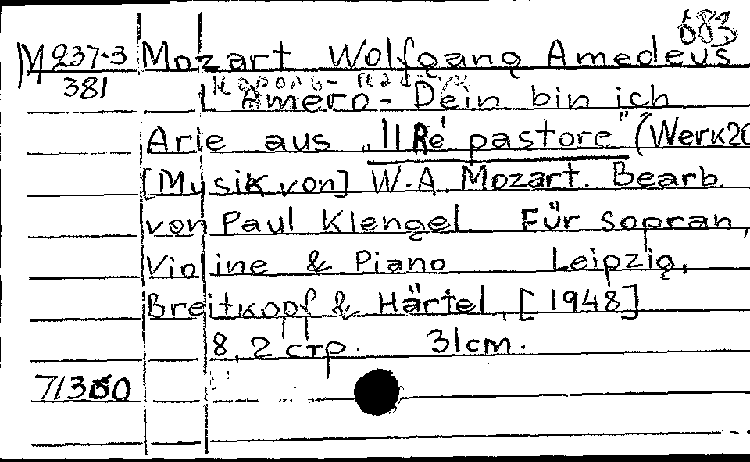 683
M 237-3 Mozart Wolfgang Amedeus
381
L'Amero - Dein bin ich
Arie aus „Il Ré pastore" (Werk 20
[Musik von] W.A. Mozart. Bearb.
von Paul Klengel Für Sopran,
Violine & Piano Leipzig,
Breitkopf & Härtel, [1948]
8, 2 стр. 31cm.